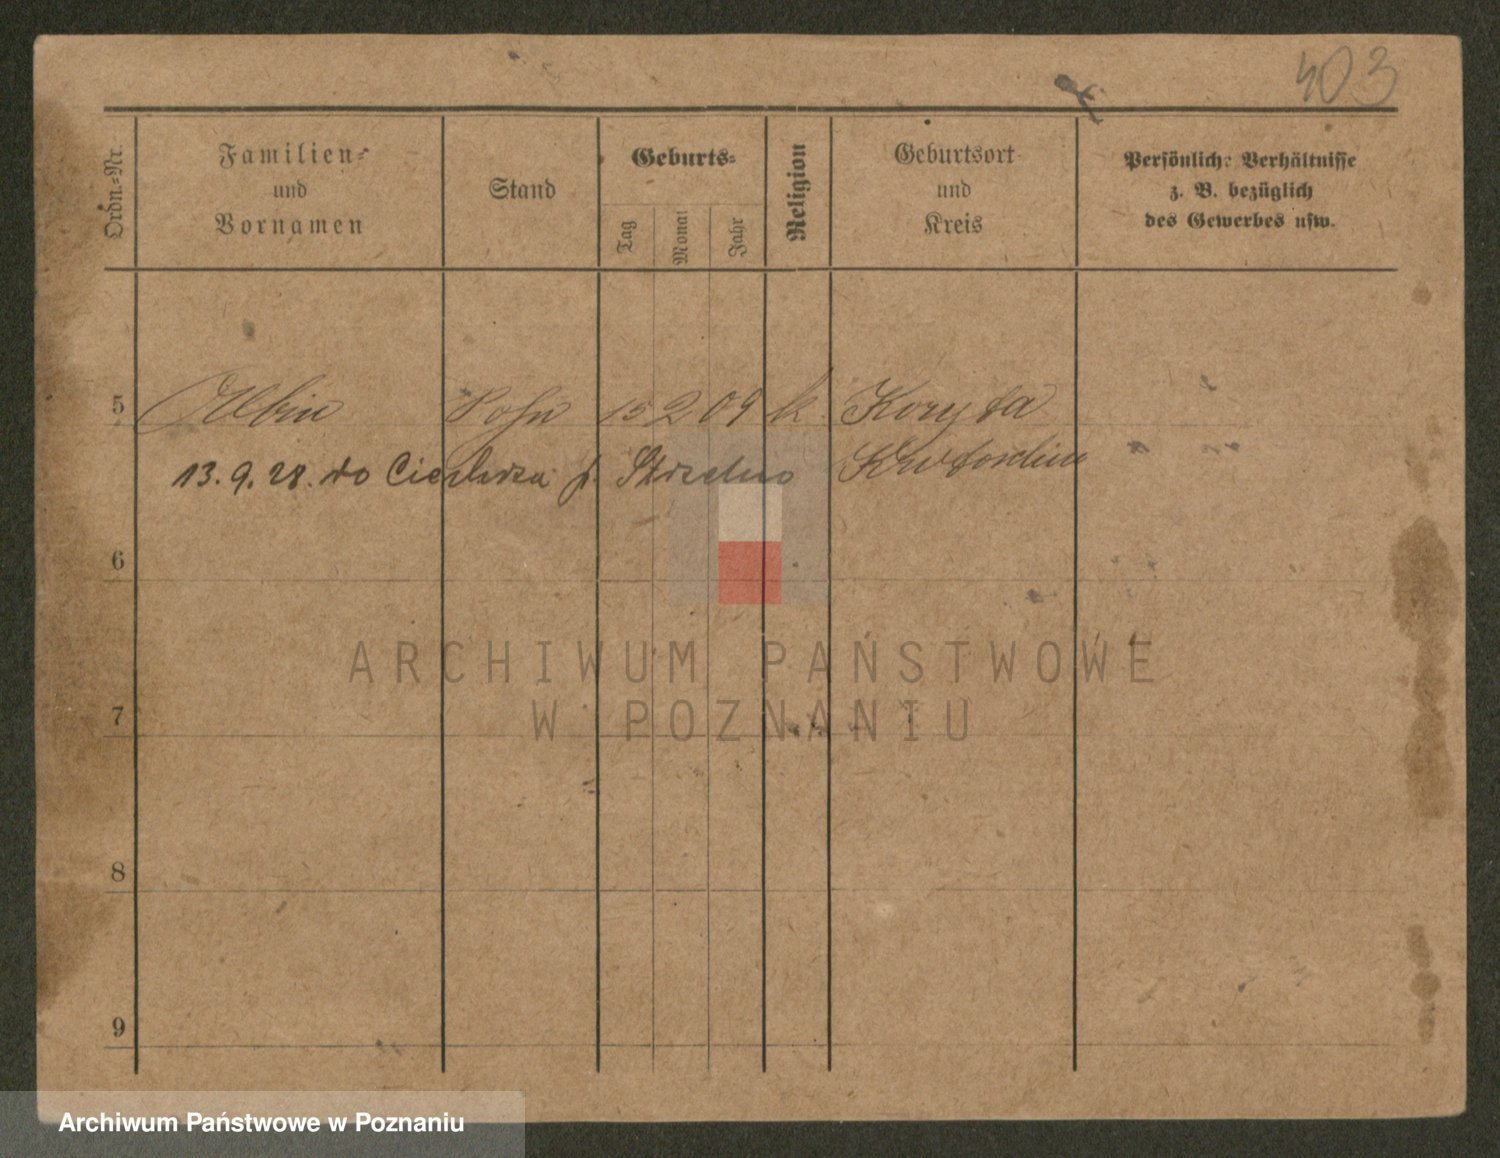 403
Ordn.-Nr.
Familien-
und
Vornamen
Stand
Geburts-
Tag
Monat
Jahr
Religion
Geburtsort
und
Kreis
Persönliche Verhältnisse
z. B. bezüglich
des Gewerbes usw.
5 Albin Sohn 15 2 09 k. Koryta
Krotoschin
13.9.28. do p. Strzelno
6
7
8
9
ARCHIWUM PAŃSTWOWE
W POZNANIU
Archiwum Państwowe w Poznaniu